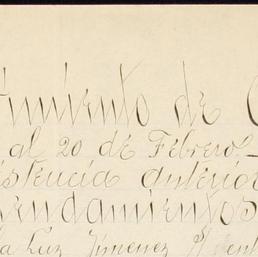 miento de
al 20 de Febrero.
istencia anterior
endamientos
la Luz Jimenez